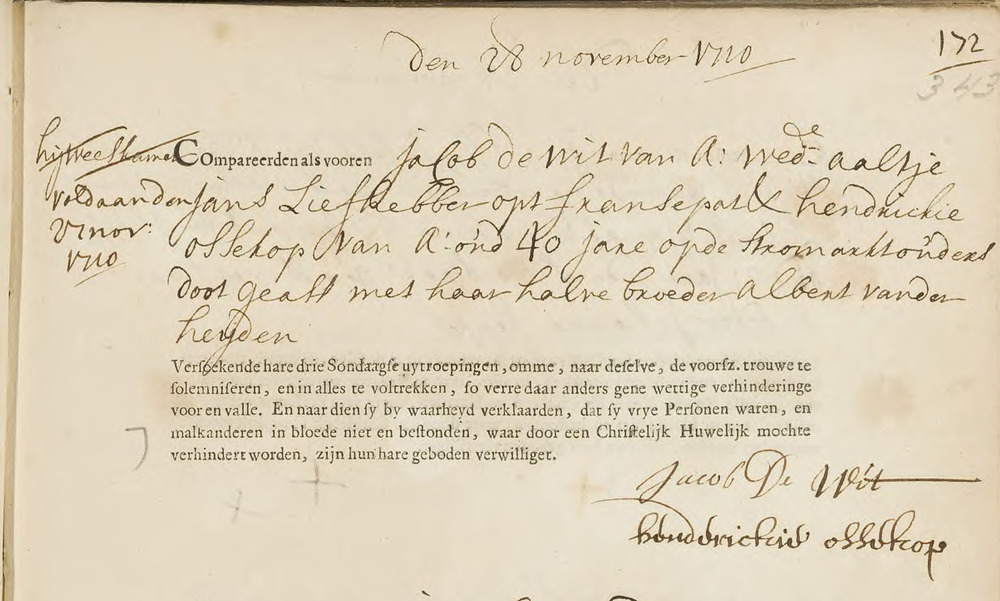 Den 28 november 1710
172
343
hij weeskamer
voldaan den
27 nov:
1710
Compareerden als vooren Jacob de wit van A: wed.e aaltje
Jans Liefhebber opt fransepat & hendrickie
ossekop van A: oud 40 jare opde stromarkt ouders
doot geast met haar halve broeder Albert vander
heijden
Versoekende hare drie Sondaagse uytroepingen, omme, naar deselve, de voorsz. trouwe te
solemniseren, en in alles te voltrekken, so verre daar anders gene wettige verhinderinge
voor en valle. En naar dien sy by waarheyd verklaarden, dat sy vrye Persoonen waren, en
malkanderen in bloede niet en bestonden, waar door een Christelijk Huwelijk mochte
verhindert worden, zijn hun hare geboden verwilliget.
Jacob De Wit
henderickie ossekop